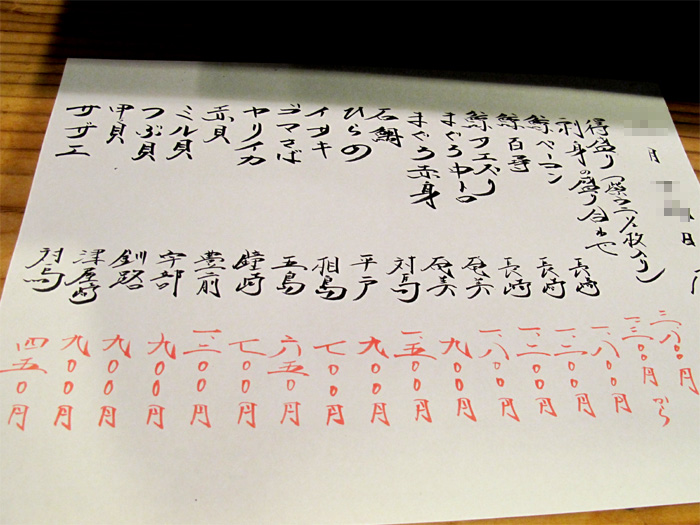 月 日
得盛り(二、三枚入り) 〇〇円
刺身の盛り合わせ 一、三〇〇円から
鯨ベーコン 長崎 一、八〇〇円
鯨百尋 長崎 一、三〇〇円
鯨サエズリ 長崎 一、三〇〇円
まぐろ中トロ 奄美 一、八〇〇円
まぐろ赤身 奄美 九〇〇円
石鯛 対馬 一、五〇〇円
ひらめ 平戸 九〇〇円
イサキ 相島 七〇〇円
ゴマさば 五島 六五〇円
ヤリイカ 鐘崎 七〇〇円
赤貝 豊前 一、三〇〇円
ミル貝 宇部 九〇〇円
つぶ貝 釧路 九〇〇円
甲貝 津屋崎 九〇〇円
サザエ 対馬 四五〇円